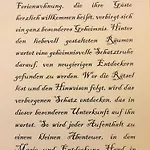 Ferienwohnung, die ihre Gäste
herzlich willkommen heißt, verbirgt sich
ein ganz besonderes Geheimnis. Hinter
den liebevoll gestalteten Räumen
wartet eine geheimnisvolle Schatztruhe
darauf, von neugierigen Entdeckern
gefunden zu werden. Wer die Rätsel
löst und den Hinweisen folgt, wird das
verborgene Schatz entdecken, das in
dieser besonderen Unterkunft auf ihn
wartet. So wird jeder Aufenthalt zu
einem kleinen Abenteuer, in dem
Magie und Entdeckung Hand in